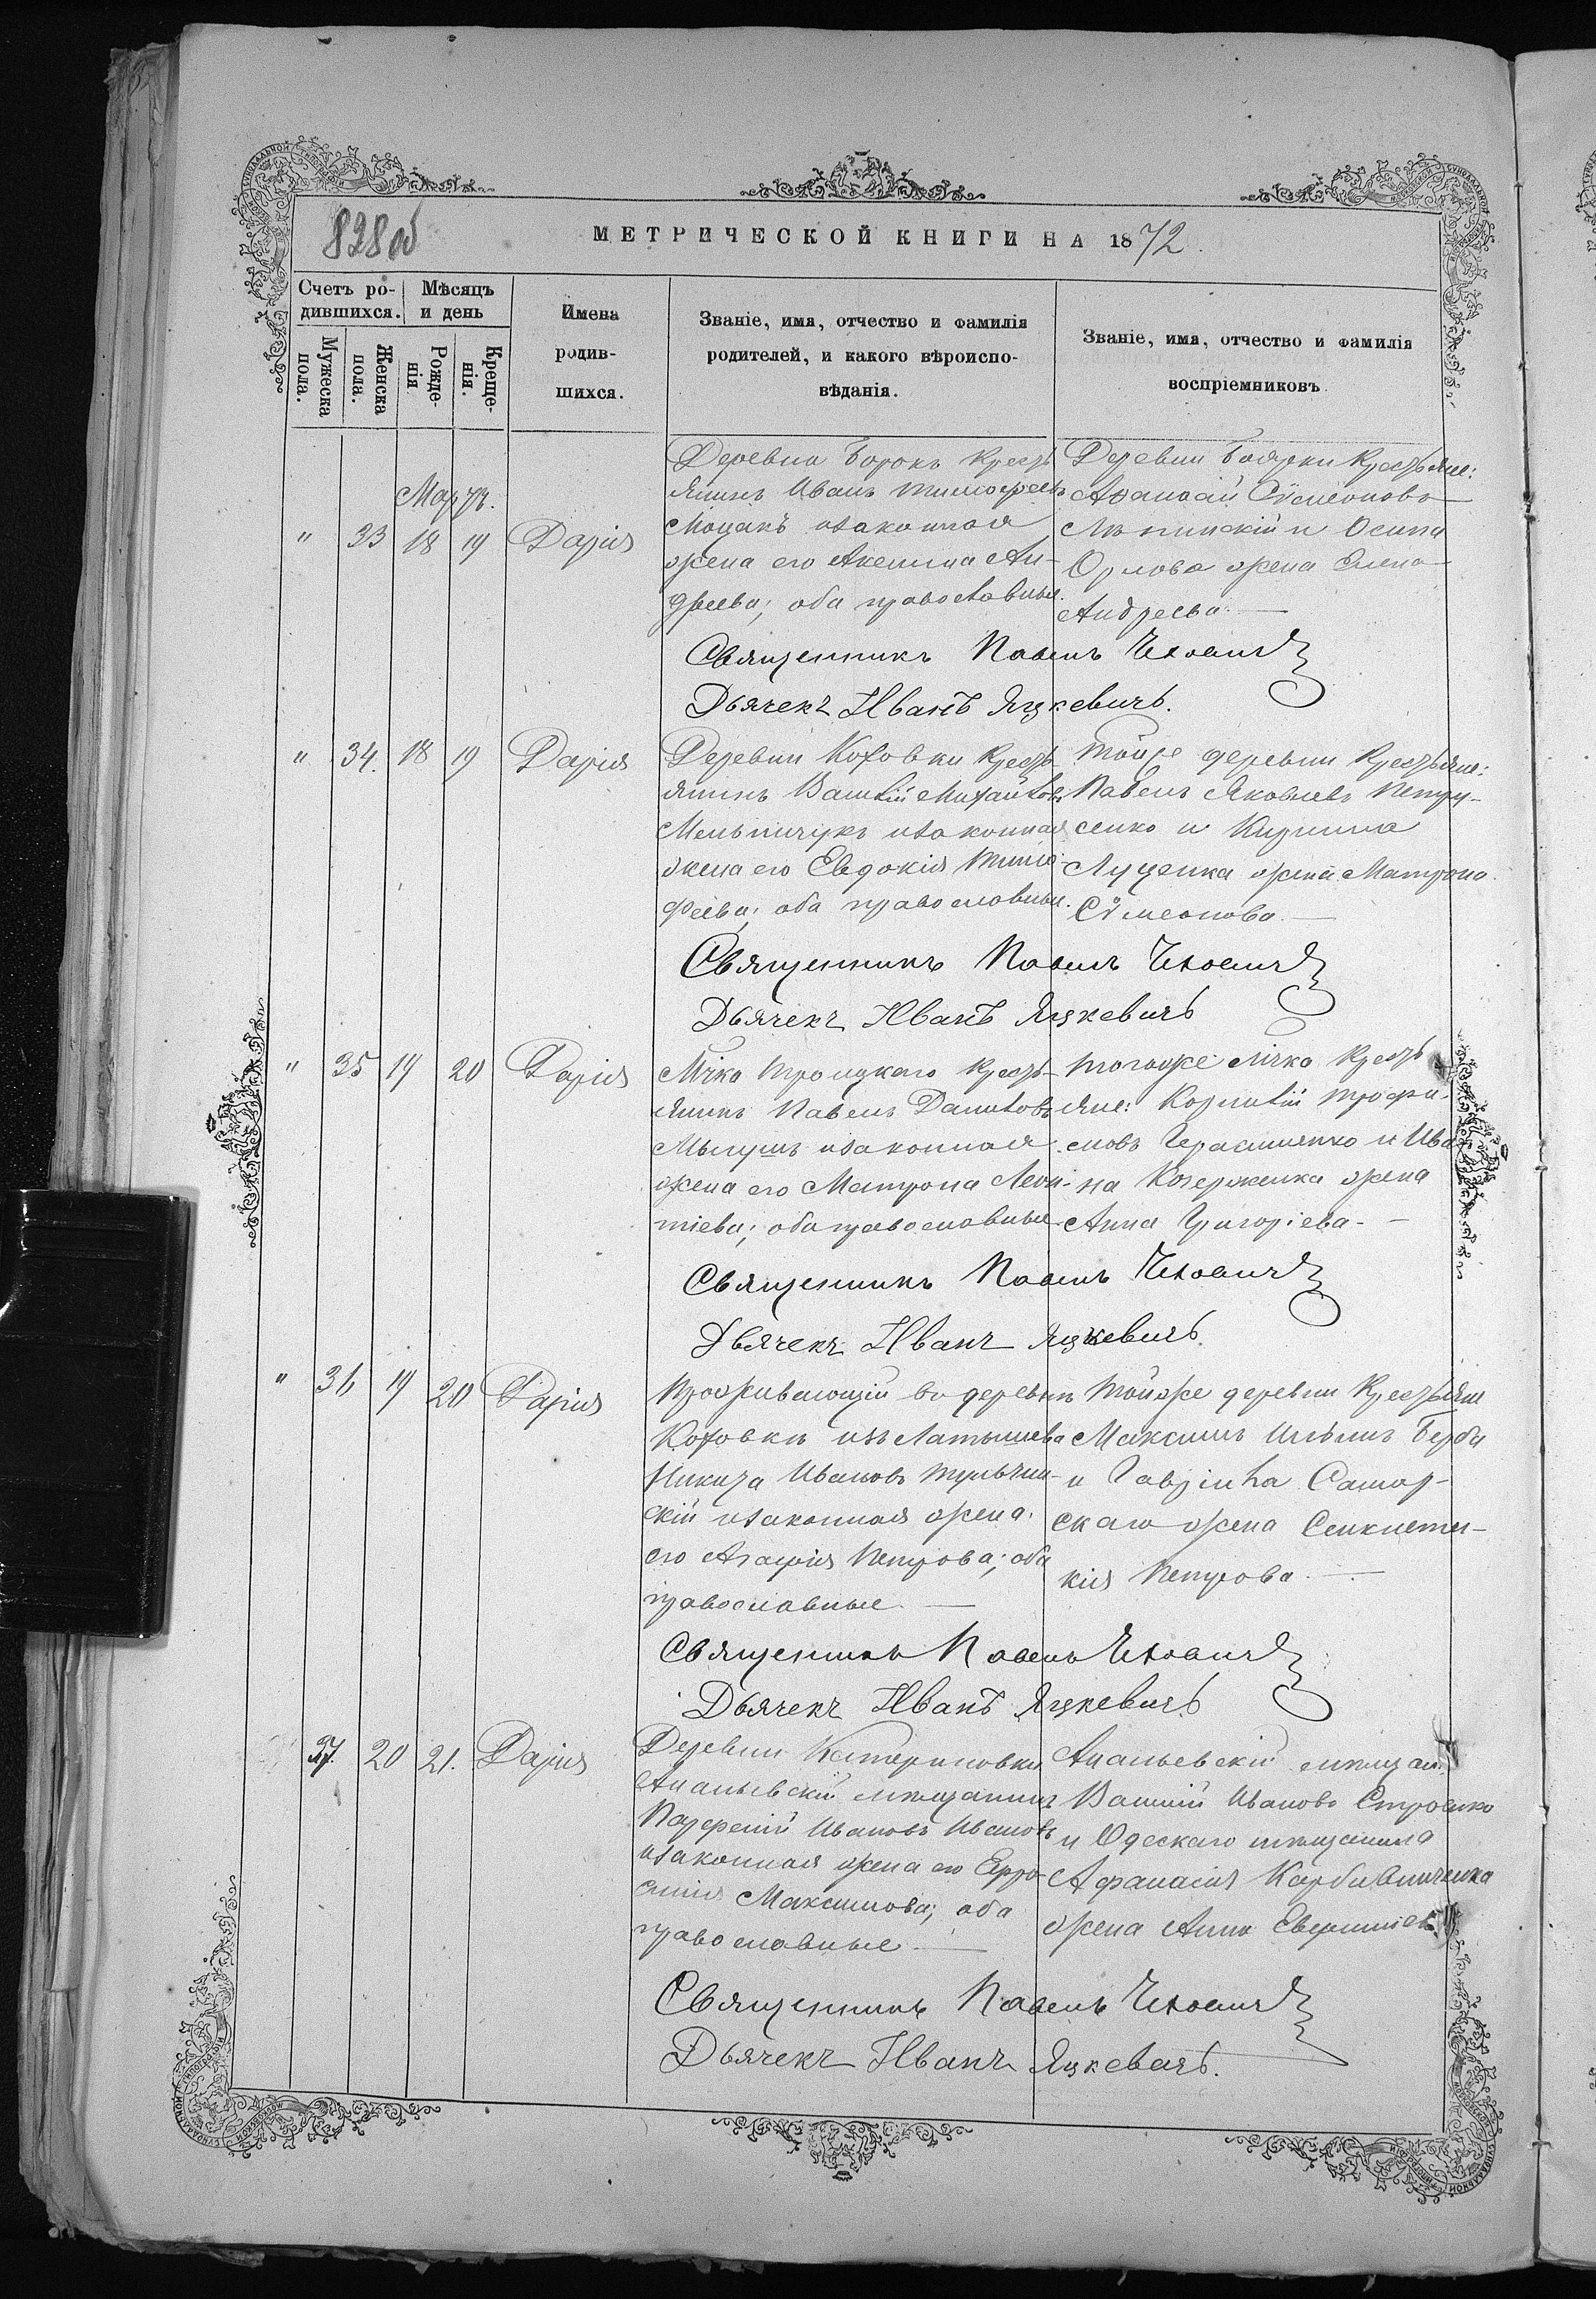 828 об
МЕТРИЧЕСКОЙ КНИГИ НА 1872.
Счетъ родившихся.
Мужеска пола.
Женска пола.
Мѣсяцъ и день
Рожденія
Крещенія.
Имена родившихся.
Званіе, имя, отчество и фамилія родителей, и какого вѣроисповѣданія.
Званіе, имя, отчество и фамилія воспріемниковъ
Мартъ.
" 33 18 19 Дарія
Деревни Боярк Кресть
янинъ Иванъ Тимофеевъ
Моцакъ изаконная
жена его Аксинія Ан-
дреева; оба православные.
Деревни Боярки Крестьяне:
Аѳанасій Сѵмеоновъ
и Осипа
Орлова жена Елена
Андреева. —
Священникъ Павелъ Чехович
Дьячекъ Иванъ Яцкевичъ.
" 34. 18 19 Дарія
Деревни Котовки Кресть
янинъ Василій Михайловъ
Мельничукъ изаконная
жена его Евдокія Тимо-
феева; оба православные.
Тойже деревни Крестьяне:
Павелъ Яковлевъ Петру-
сенко и Кирилла
Луценка жена Матрона
Сѵмеонова. —
Священникъ Павелъ Чехович
Дьячекъ Иванъ Яцкевичъ
" 35 19 20 Дарія
Мѣчка Троицкаго Кресть-
янинъ Павелъ Даниловъ
изаконная
жена его Матрона Леон-
тіева; оба православные.
Тогоже мѣчка Кресть
яне: Корнилій Трофи-
мовъ Герасименко и Ива
на Кочерженка жена
Анна Григоріева. —
Священникъ Павелъ Чехович
Дьячекъ Иванъ Яцкевичъ.
" 36 19 20 Дарія
Проживающій въ деревнѣ
Котовкѣ изъ Латышева
Никита Ивановъ Тульчин-
скій изаконная жена
его Агафія Петрова; оба
православные. —
Тойже деревни Крестьяне
Максимъ Ильинъ Берба
и Гавріила Самар-
скаго жена Синклити-
кія Петрова. —
Священникъ Павелъ Чехович
Дьячекъ Иванъ Яцкевичъ
37. 20 21. Дарія
Деревни Катериновки
Ананьевскій мѣщанинъ
Парфеній Ивановъ Ивановъ
изаконная жена его Евфро-
синія Максимова; оба
православные —
Ананьевскій мѣщан.
Василій Ивановъ
и Одескаго мѣщанина
Афанасія
жена Анна
Священникъ Павелъ Чехович
Дьячекъ Иванъ Яцкевичъ.